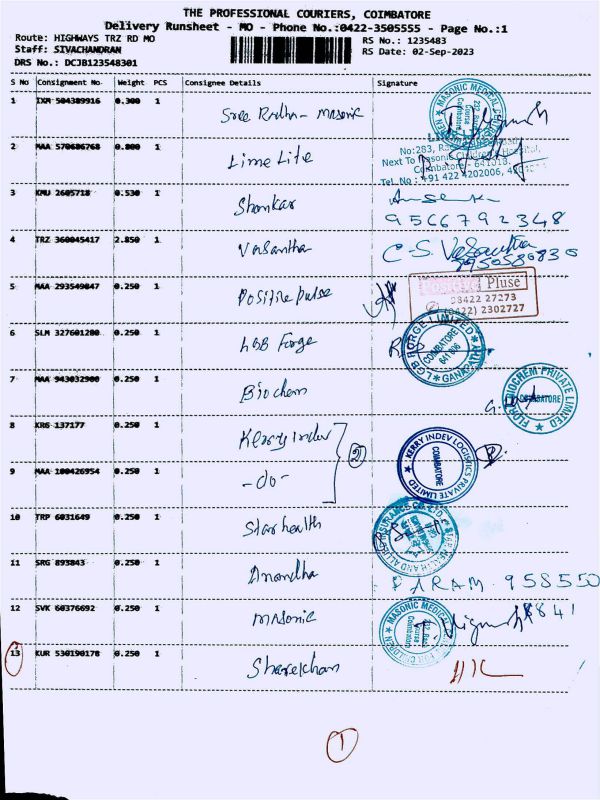 THE PROFESSIONAL COURIERS, COIMBATORE
Delivery Runsheet - MO - Phone No.:0422-3505555 - Page No.:1
Route: HIGHWAYS TRZ RD MO
RS No.: 1235483
Staff: SIVACHANDRAN
RS Date: 02-Sep-2023
DRS No.: DCJB123548301
S No Consignment No. Weight PCS Consignee Details Signature
1 IXM 504389916 0.300 1 Sree Radha - masonic
2 MAA 570686768 0.800 1 Lime Lite
No:283,
Next To Masonic Children's Hospital,
Coimbatore - 641018.
Tel. No : +91 422 4202006,
3 KMU 2605718 0.530 1 Shankar
9566792348
4 TRZ 360045417 2.850 1 Vasantha C-S. Vasantha
5 MAA 293549847 0.250 1 Positive pulse Positive Pluse
98422 27273
(0422) 2302727
6 SLM 327601280 0.250 1 LGB Forge LGB FORGE LIMITED
COIMBATORE
641 006
7 MAA 943032900 0.250 1 Biochem BIOCHEM PRIVATE LIMITED
COIMBATORE
8 KRG 137177 0.250 1 Kerry Indev KERRY INDEV LOGISTICS PRIVATE LIMITED
COIMBATORE
2
9 MAA 100426954 0.250 1 -do-
10 TRP 6031649 0.250 1 Star health STAR HEALTH AND ALLIED INSURANCE CO. LTD.
11 SRG 893843 0.250 1 Anandha PARAM. 958550
8841
12 SVK 60376692 0.250 1 masonic MASONIC MEDICAL FOR CHILDREN
Coimbatore
13 KUR 530190178 0.250 1 Sharekhan
1